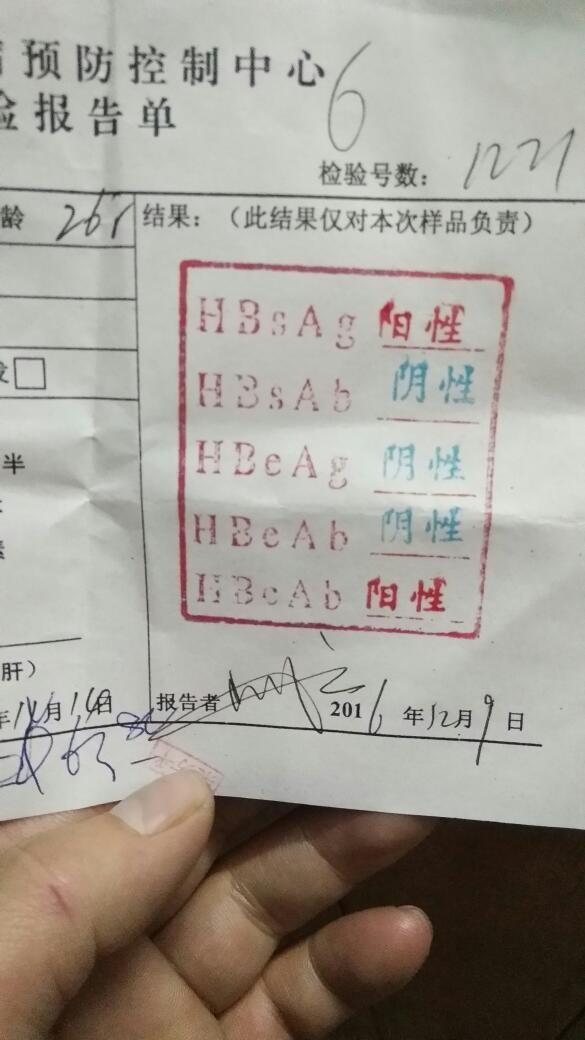 预防控制中心
6
报告单
检验号数：1221
龄 26岁 结果：（此结果仅对本次样品负责）
HBsAg 阳性
HBsAb 阴性
HBeAg 阴性
半
HBeAb 阴性
HBcAb 阳性
肝）
年 月 日 报告者 2016年12月9日